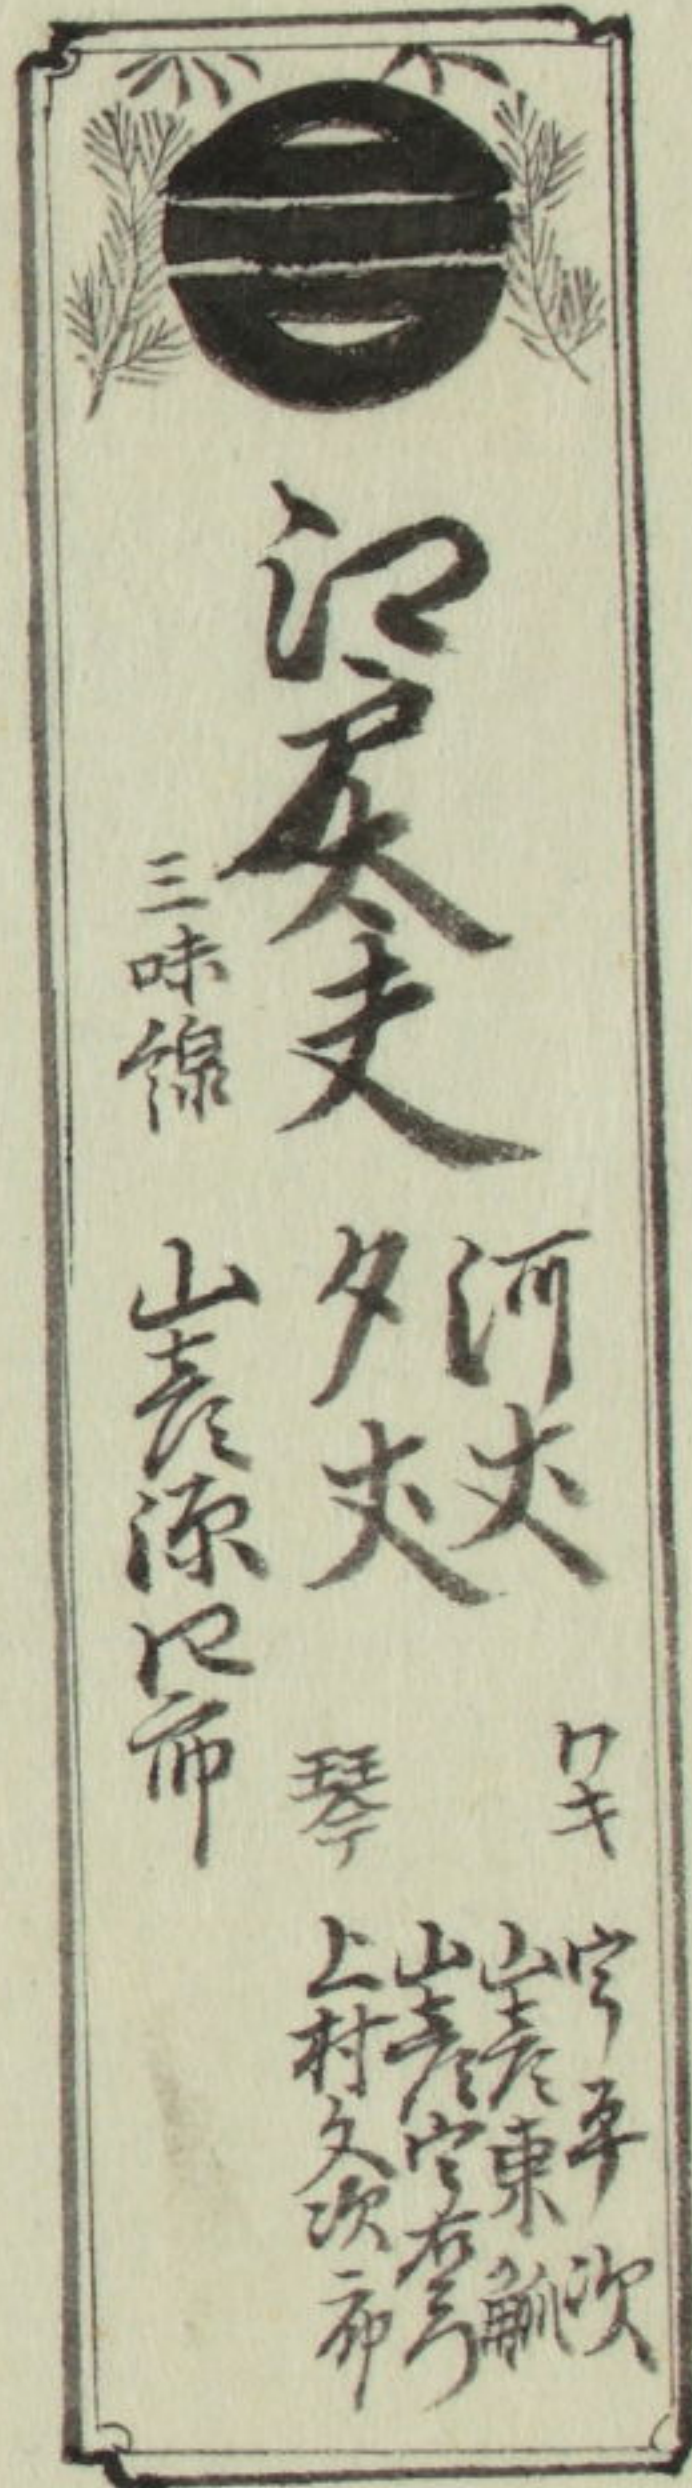 江戸太夫
河丈
夕丈
ワキ
宇平次
山彦東觚
山彦宇右衛門
琴
上村文次郎
三味線
山彦源四郎